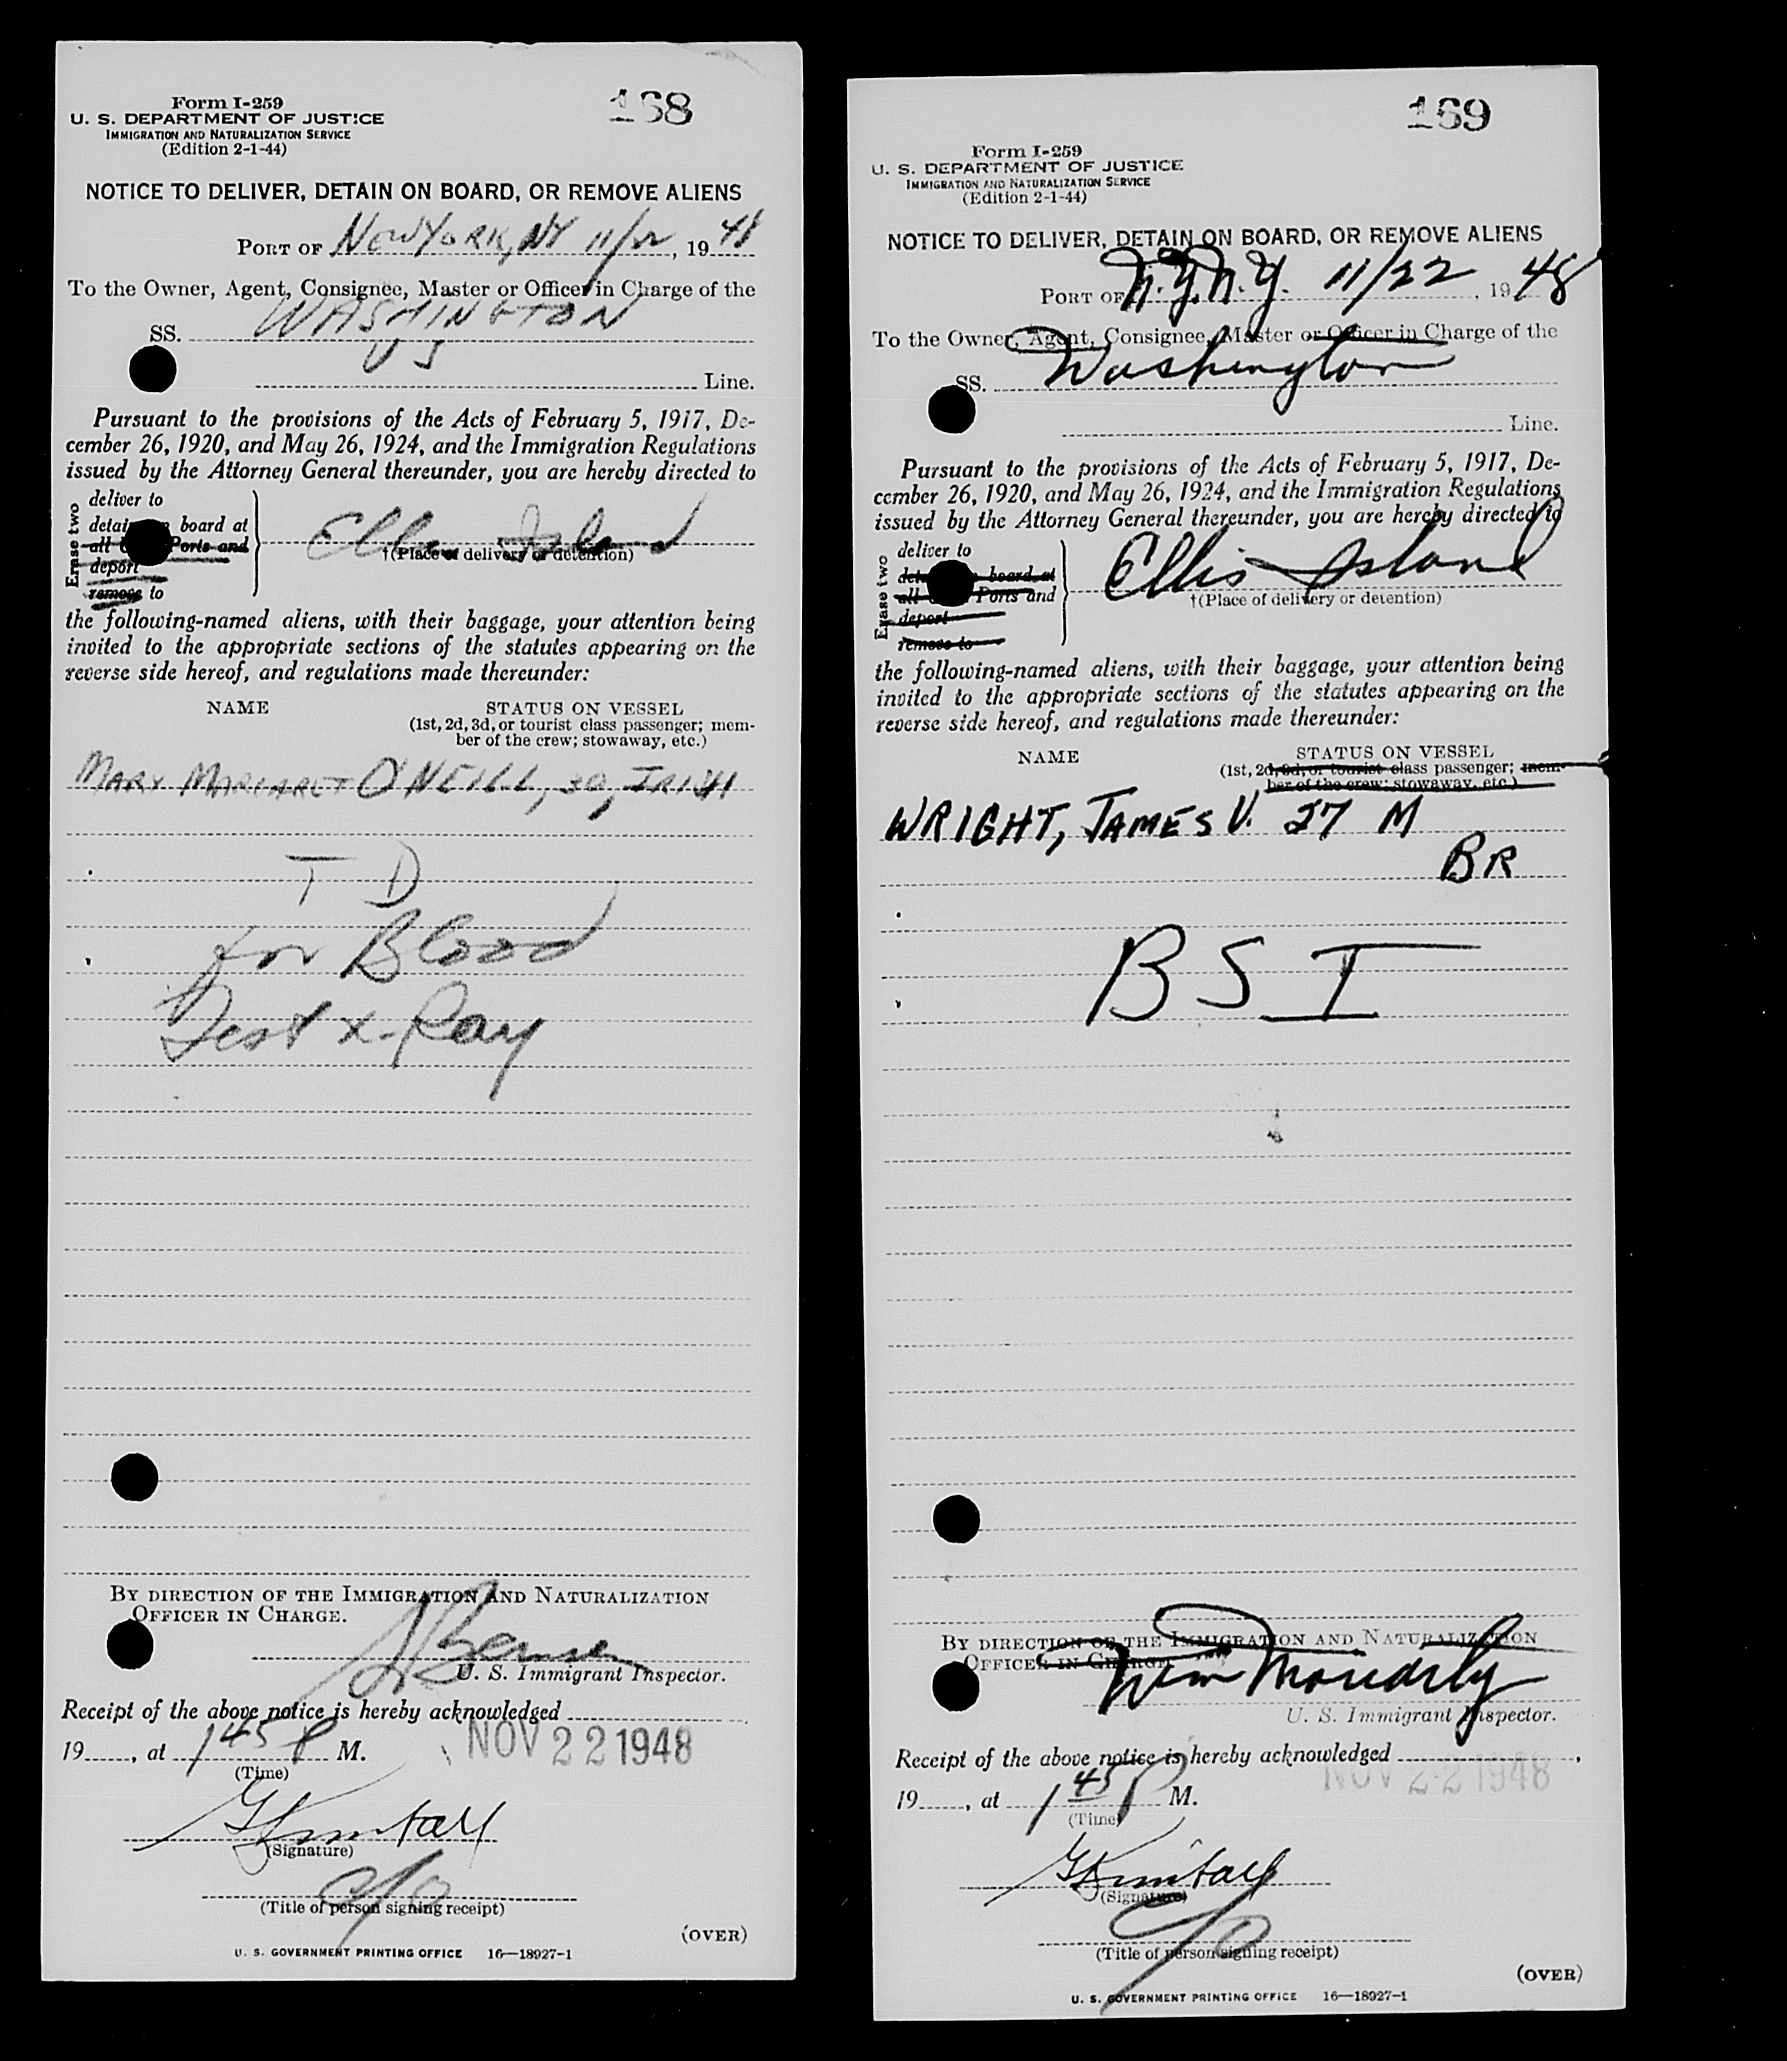 168
Form I-259
U. S. DEPARTMENT OF JUSTICE
IMMIGRATION AND NATURALIZATION SERVICE
(Edition 2-1-44)
NOTICE TO DELIVER, DETAIN ON BOARD, OR REMOVE ALIENS
PORT OF NEW YORK, NY 11/22, 1948
To the Owner, Agent, Consignee, Master or Officer in Charge of the
SS. WASHINGTON
US
Line.
Pursuant to the provisions of the Acts of February 5, 1917, De-
cember 26, 1920, and May 26, 1924, and the Immigration Regulations
issued by the Attorney General thereunder, you are hereby directed to
Erase two
deliver to
detain board at
all Ports and
deport
remove to
Ellis Island
†(Place of delivery or detention)
the following-named aliens, with their baggage, your attention being
invited to the appropriate sections of the statutes appearing on the
reverse side hereof, and regulations made thereunder:
NAME STATUS ON VESSEL
(1st, 2d, 3d, or tourist class passenger; mem-
ber of the crew; stowaway, etc.)
MARY MARGARET O'NEILL, 30, IRISH
T D
for Blood
Test X-Ray
BY DIRECTION OF THE IMMIGRATION AND NATURALIZATION
OFFICER IN CHARGE.
U. S. Immigrant Inspector.
Receipt of the above notice is hereby acknowledged
NOV 22 1948
19, at 145 P M.
(Time)
(Signature)
(Title of person signing receipt)
(OVER)
U. S. GOVERNMENT PRINTING OFFICE 16—18927-1
169
Form I-259
U. S. DEPARTMENT OF JUSTICE
IMMIGRATION AND NATURALIZATION SERVICE
(Edition 2-1-44)
NOTICE TO DELIVER, DETAIN ON BOARD, OR REMOVE ALIENS
PORT OF N.Y.N.Y. 11/22, 1948
To the Owner, Agent, Consignee, Master or Officer in Charge of the
SS. Washington
Line.
Pursuant to the provisions of the Acts of February 5, 1917, De-
cember 26, 1920, and May 26, 1924, and the Immigration Regulations
issued by the Attorney General thereunder, you are hereby directed to
Erase two
deliver to
board at
all Ports and
deport
remove to
Ellis Island
†(Place of delivery or detention)
the following-named aliens, with their baggage, your attention being
invited to the appropriate sections of the statutes appearing on the
reverse side hereof, and regulations made thereunder:
NAME STATUS ON VESSEL
(1st, 2d, 3d, or tourist class passenger; mem-
ber of the crew; stowaway, etc.)
WRIGHT, JAMES V. 27 M
BR
BSI
BY DIRECTION OF THE IMMIGRATION AND NATURALIZATION
OFFICER IN CHARGE
Wm Moriarty
U. S. Immigrant Inspector.
Receipt of the above notice is hereby acknowledged,
NOV 22 1948
19, at 145 P M.
(Time)
(Signature)
(Title of person signing receipt)
(OVER)
U. S. GOVERNMENT PRINTING OFFICE 16—18927-1